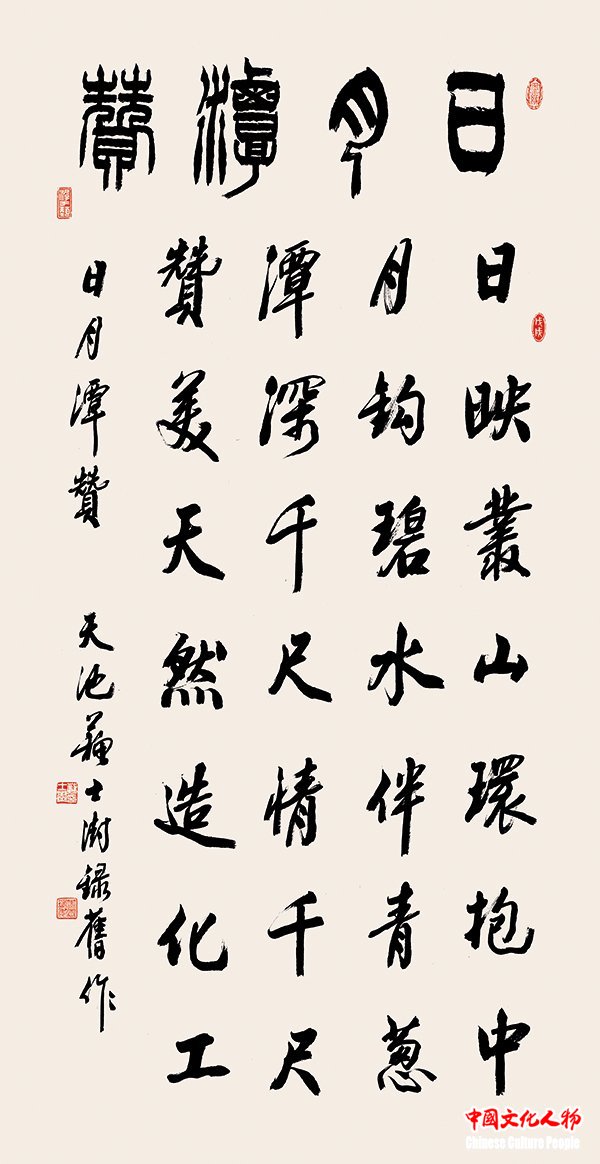 日月潭贊
日映叢山環抱中
月鈎碧水伴青葱
潭深千尺情千尺
贊美天然造化工
日月潭贊 天池蘇士澍録舊作
戊戌
中國文化人物
Chinese Culture People